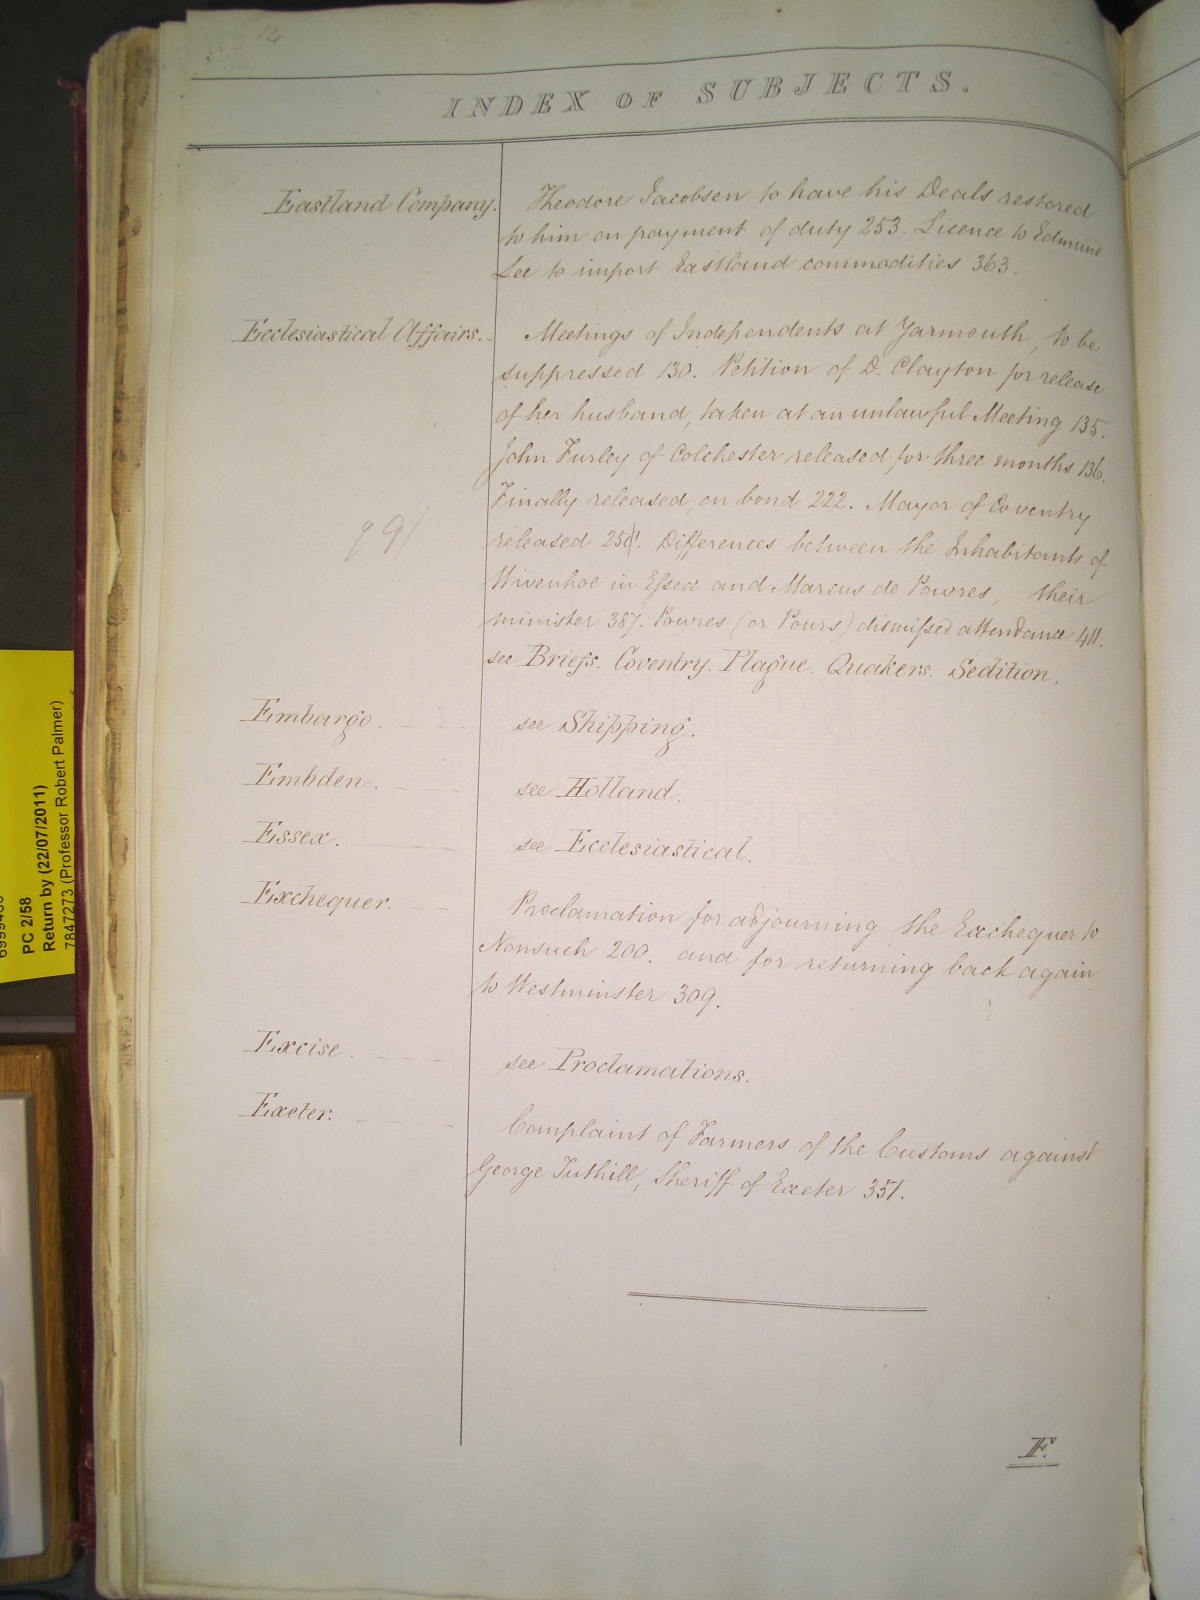 14
INDEX OF SUBJECTS.
Eastland Company. Theodore Jacobsen to have his Deals restored
to him on payment of duty 253. Licence to Edmund
Lee to import Eastland commodities 363.
Ecclesiastical Affairs. Meetings of Independents at Yarmouth, to be
suppressed 130. Petition of D. Clayton for release
of her husband, taken at an unlawful Meeting 135.
John Furley of Colchester released for three months 136.
Finally released, on bond 222. Mayor of Coventry
released Differences between the Inhabitants of
Wivenhoe in Essex and Marcus de Powres, their
minister 387. Powres (or Pours) dismissed attendance 411.
see Briefs. Coventry. Plague. Quakers. Sedition.
Embargo. see Shipping.
Embden. see Holland.
Essex. see Ecclesiastical.
Exchequer. Proclamation for adjourning the Exchequer to
Nonsuch 200. and for returning back again
to Westminster 309.
Excise. see Proclamations.
Exeter. Complaint of Farmers of the Customs against
George Tuthill, Sheriff of Exeter 351.
F.
PC 2/58
Return by (22/07/2011)
7847273 (Professor Robert Palmer)